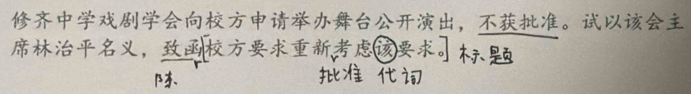 修齐中学戏剧学会向校方申请举办舞台公开演出，不获批准。试以该会主
席林治平名义，致函[校方要求重新考虑该要求。] 标题
陈 批准 代词